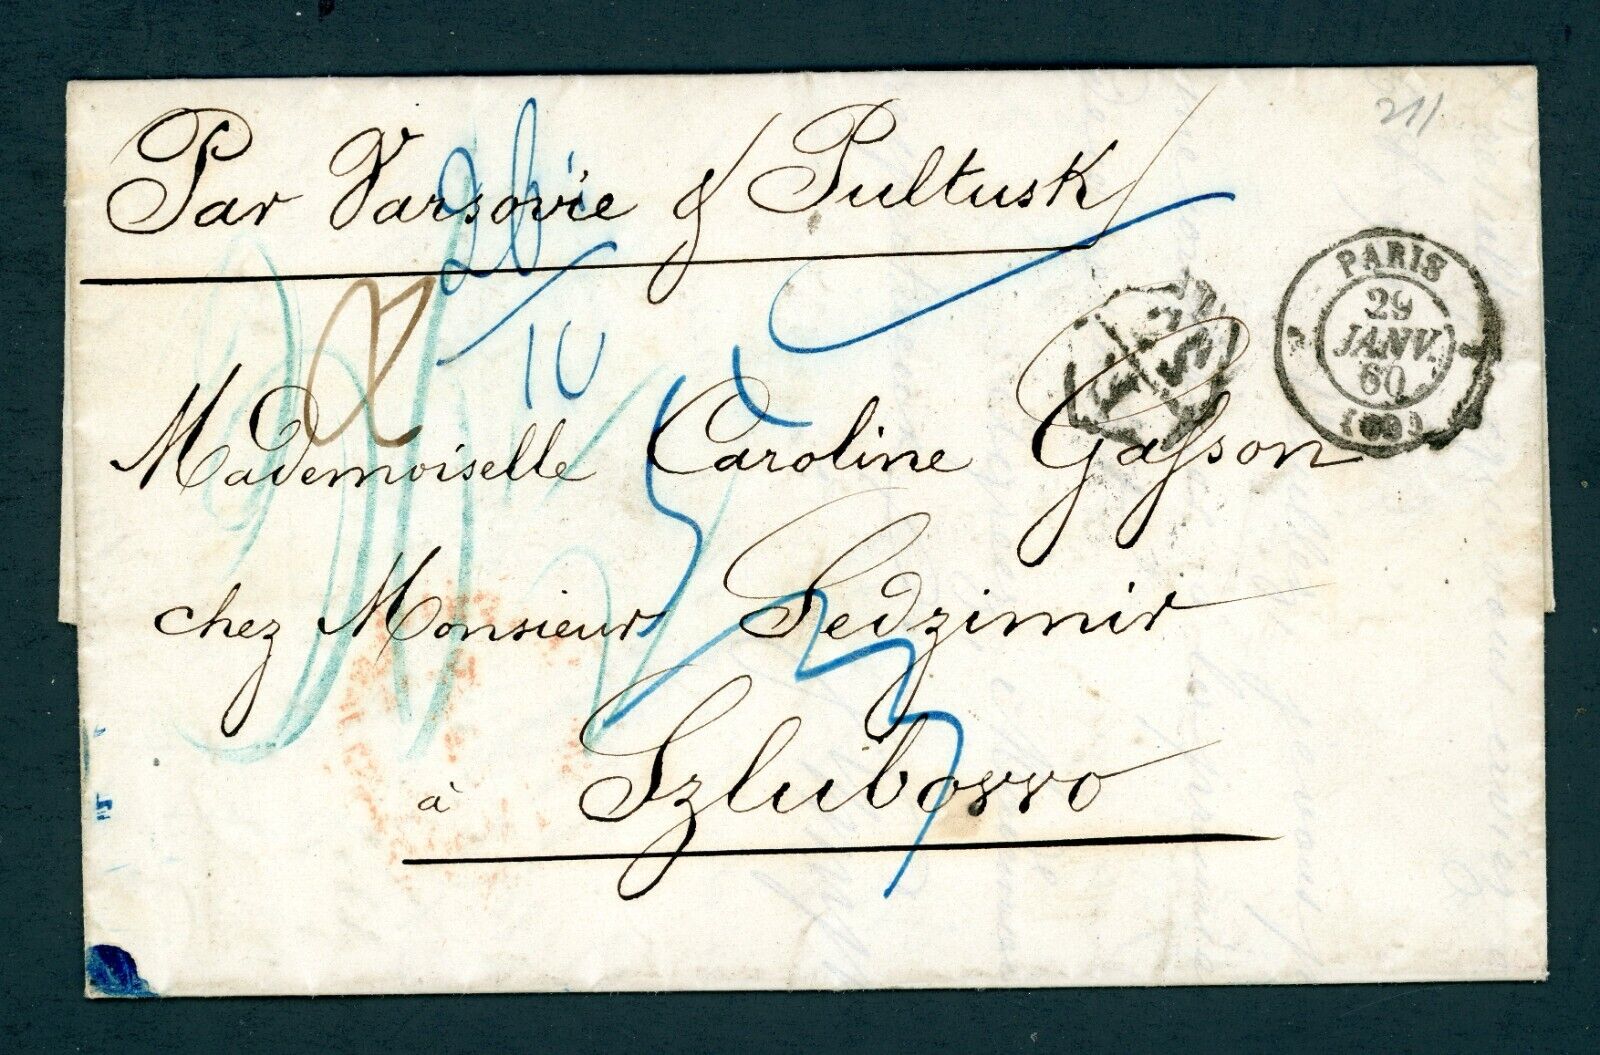 Par Varsovie & Pultusk
211
10
PARIS
29
JANV.
60
(60)
Mademoiselle Caroline Gaſson
chez Monsieur Sedzimir
à Szlubowo